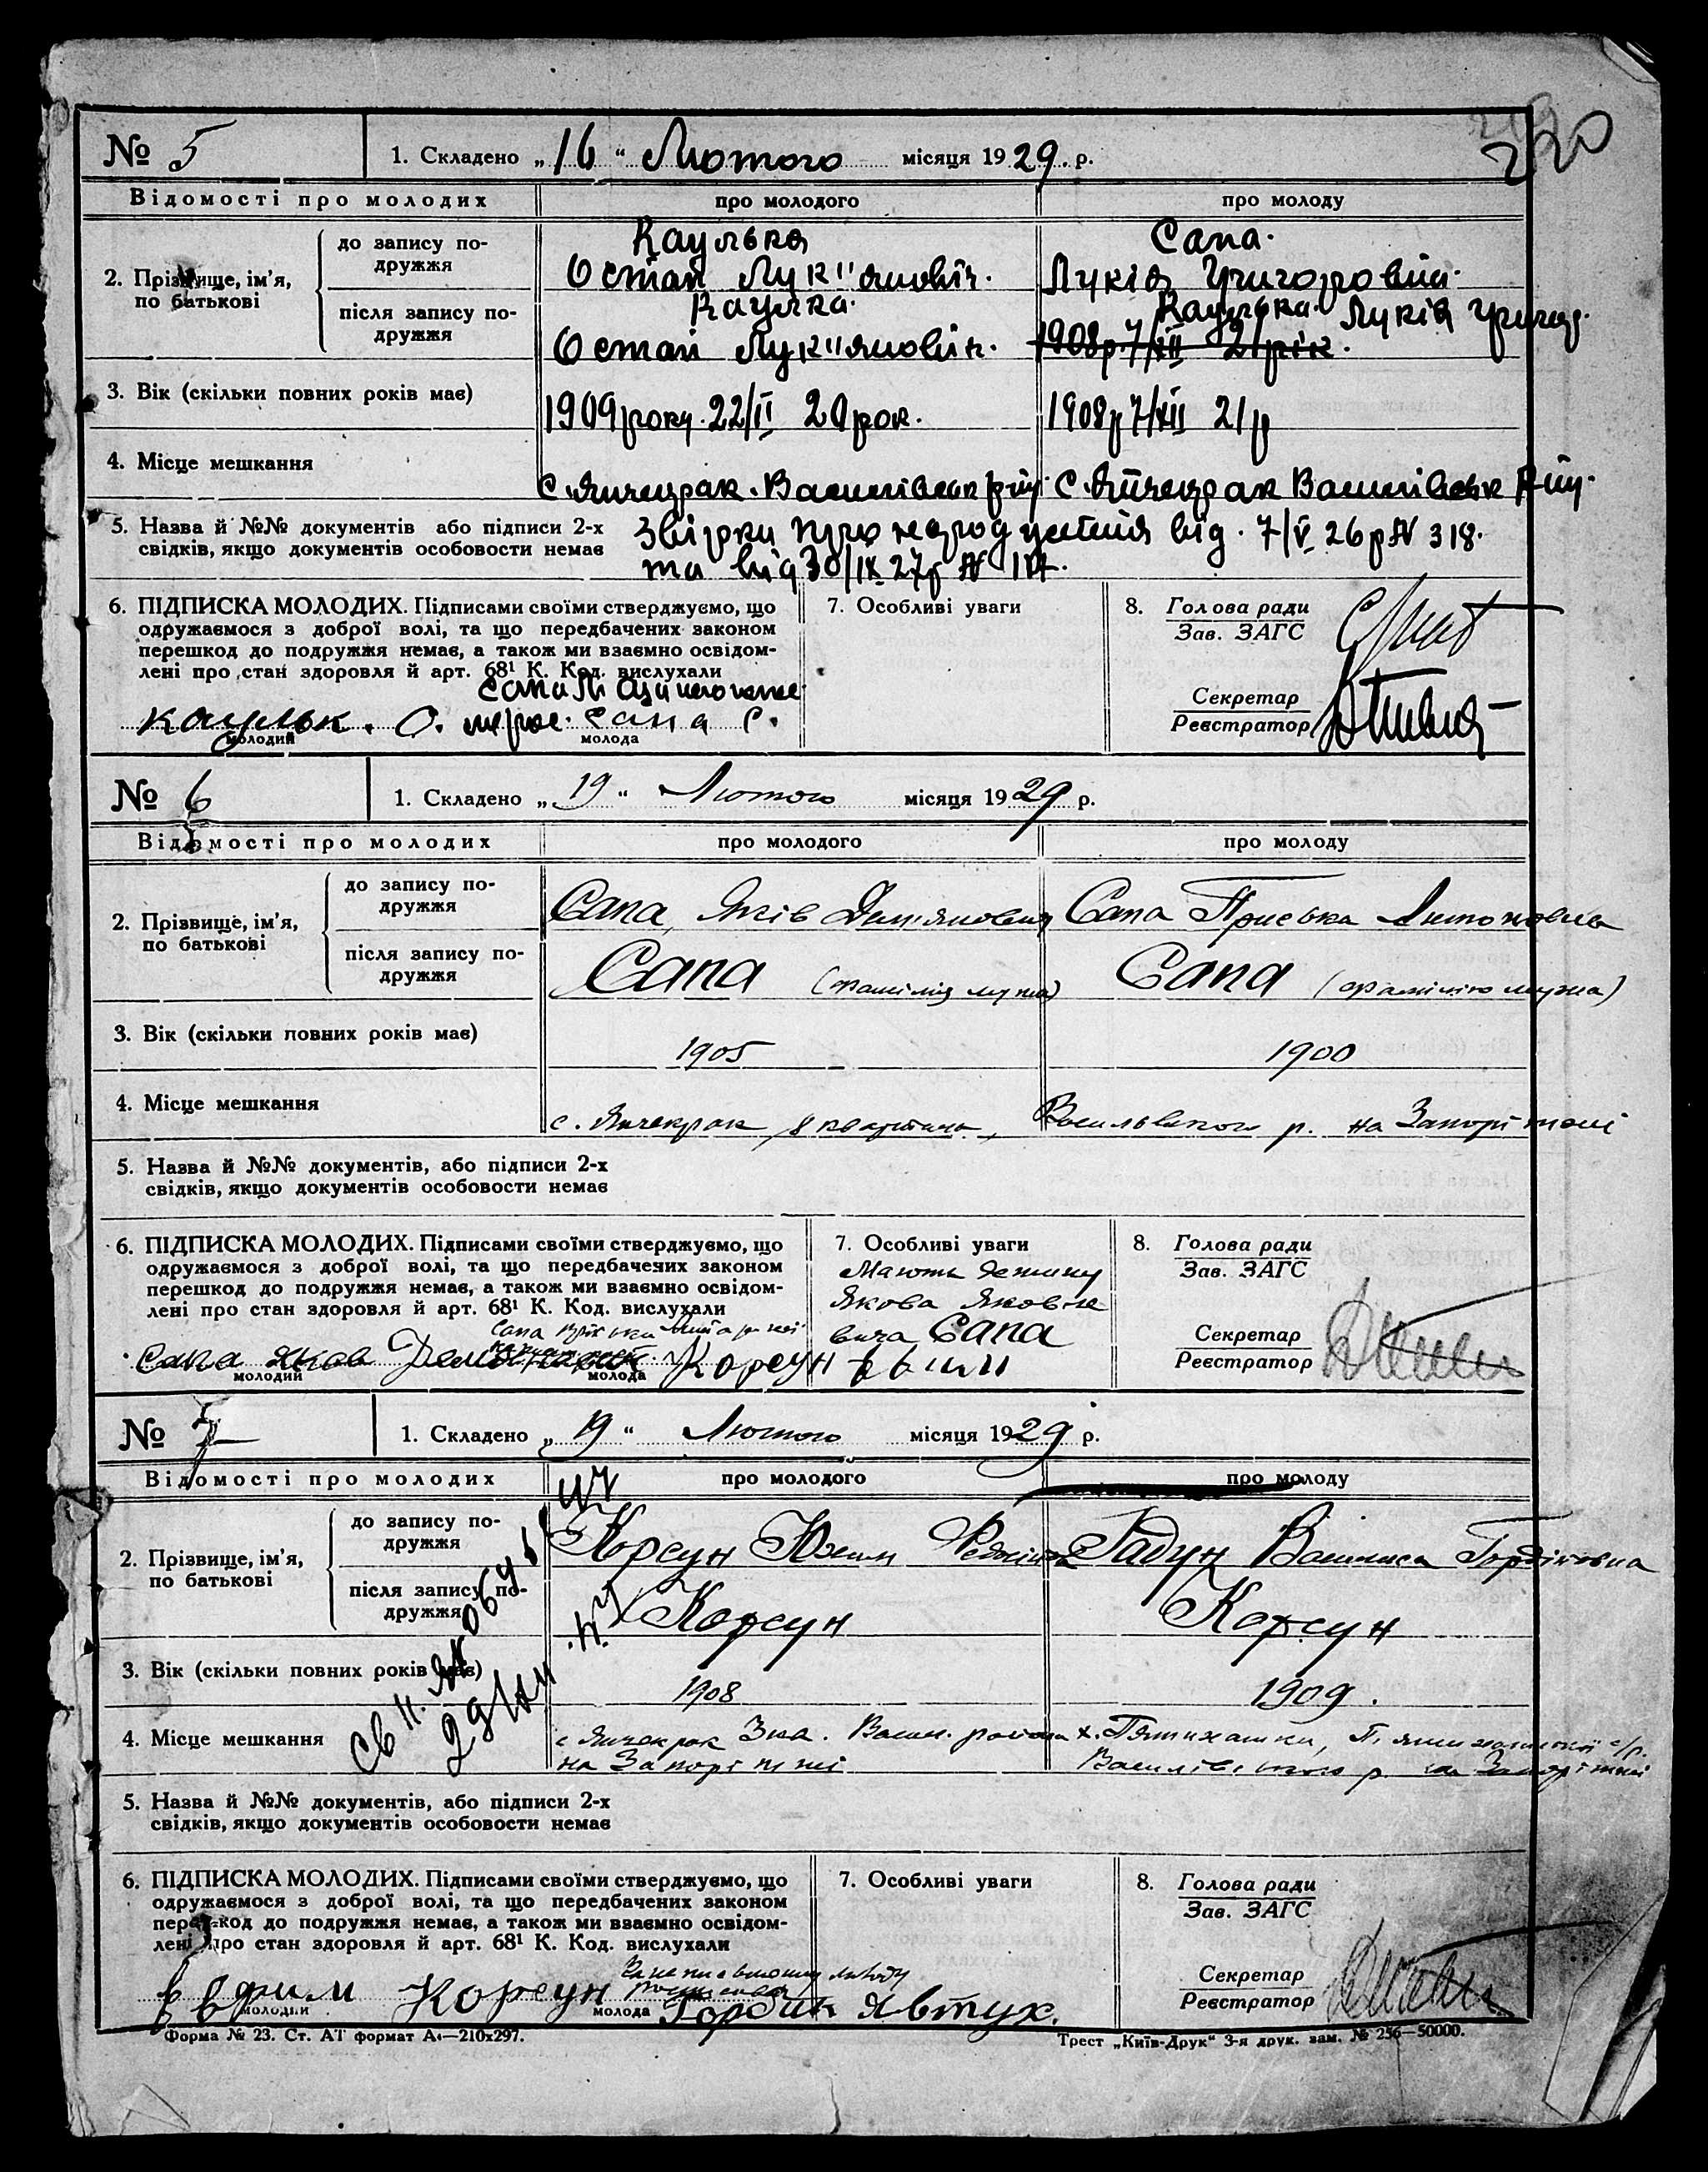 220
№ 5
1. Складено „16“ Лютого місяця 1929 р.
Відомості про молодих про молодого про молоду
2. Прізвище, ім'я, по батькові
до запису по-
дружжя
Каулька Сапа.
Остап Лук"янович. Лукія Григоровна.
після запису по-
дружжя
Каулька. Каулька. Лукія Григор.
Остап Лук"янович. 1908р. 7/XII 21рік.
3. Вік (скільки повних років має)
1909року. 22/II 20рок. 1908р 7/XII 21р
4. Місце мешкання
с. Янчекрак. Василівськ рай. с. Янчекрак Василівськ Рай.
5. Назва й №№ документів або підписи 2-х
свідків, якщо документів особовости немає
від. 7/V 26р № 318.
та від 30/IX 27р №
6. ПІДПИСКА МОЛОДИХ. Підписами своїми стверджуємо, що
одружаємося з доброї волі, та що передбачених законом
перешкод до подружжя немає, а також ми взаємно освідом-
лені про стан здоровля й арт. 68¹ К. Код. вислухали
Каульк. О. Сапа С.
молодий молода
7. Особливі уваги
8. Голова ради
Зав. ЗАГС
Секретар
Реєстратор
№ 6
1. Складено „19“ Лютого місяця 1929 р.
Відомості про молодих про молодого про молоду
2. Прізвище, ім'я,
по батькові
до запису по-
дружжя
Сапа, Яків Дем'янович Сапа Приська Антоновна
після запису по-
дружжя
Сапа (фамілія мужа) Сапа (фамілію мужа)
3. Вік (скільки повних років має)
1905 1900
4. Місце мешкання
с. Янчекрак, 8 квартал, Васильвского р. на Запоріжчні
5. Назва й №№ документів, або підписи 2-х
свідків, якщо документів особовости немає
6. ПІДПИСКА МОЛОДИХ. Підписами своїми стверджуємо, що
одружаємося з доброї волі, та що передбачених законом
перешкод до подружжя немає, а також ми взаємно освідом-
лені про стан здоровля й арт. 68¹ К. Код. вислухали
Сапа Яков Корсун
молодий молода
7. Особливі уваги
Мають дитину
Якова Яковле
вича Сапа
8. Голова ради
Зав. ЗАГС
Секретар
Реєстратор
№ 7
1. Складено „19“ Лютого місяця 1929 р.
Відомості про молодих про молодого про молоду
2. Прізвище, ім'я,
по батькові
до запису по-
дружжя
Корсун Юхим Гадун Василиса Гордіковна
після запису по-
дружжя
Корсун Корсун
3. Вік (скільки повних років має)
1908 1909.
4. Місце мешкання
с Янчекрак Васил. района х. Пятихатки,
на Запоріжчні Василівського р. на Запоріжчні
5. Назва й №№ документів, або підписи 2-х
свідків, якщо документів особовости немає
6. ПІДПИСКА МОЛОДИХ. Підписами своїми стверджуємо, що
одружаємося з доброї волі, та що передбачених законом
перешкод до подружжя немає, а також ми взаємно освідом-
лені про стан здоровля й арт. 68¹ К. Код. вислухали
Евфим Корсун Гордик Явтух.
молодий молода
7. Особливі уваги
8. Голова ради
Зав. ЗАГС
Секретар
Реєстратор
Форма № 23. Ст. АІ формат А₄—210х297.
Трест „Київ-Друк“ 3-я друк. зам. № 256—50000.